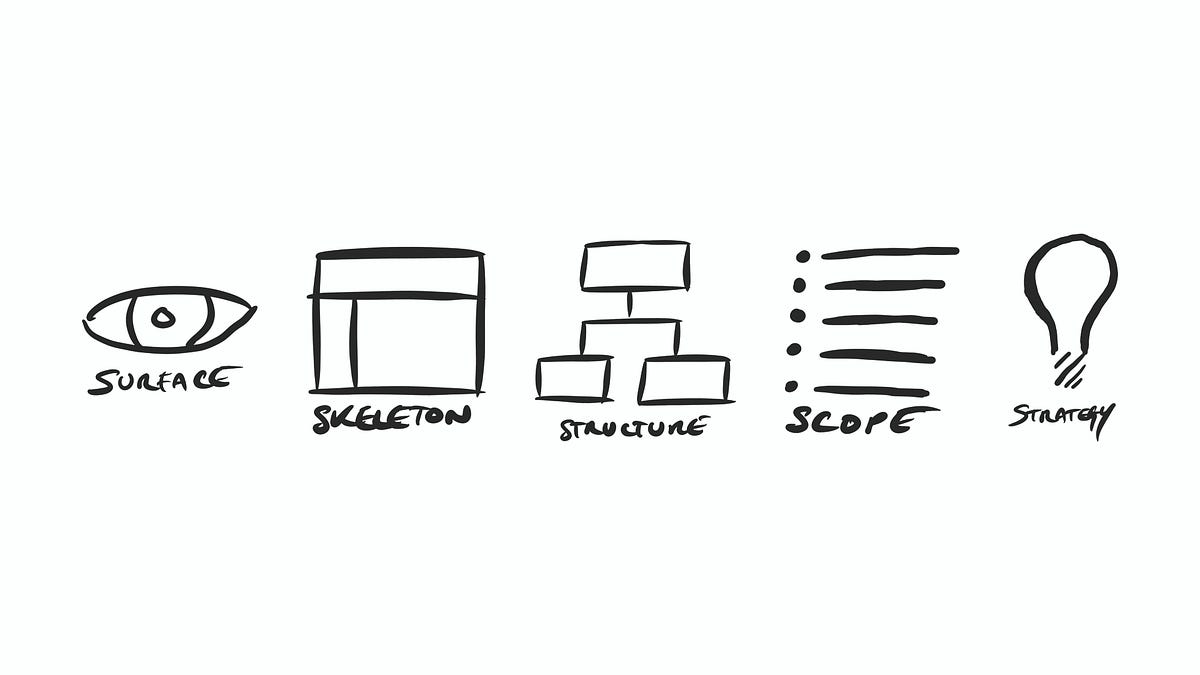 SURFACE
SKELETON
STRUCTURE
SCOPE
STRATEGY